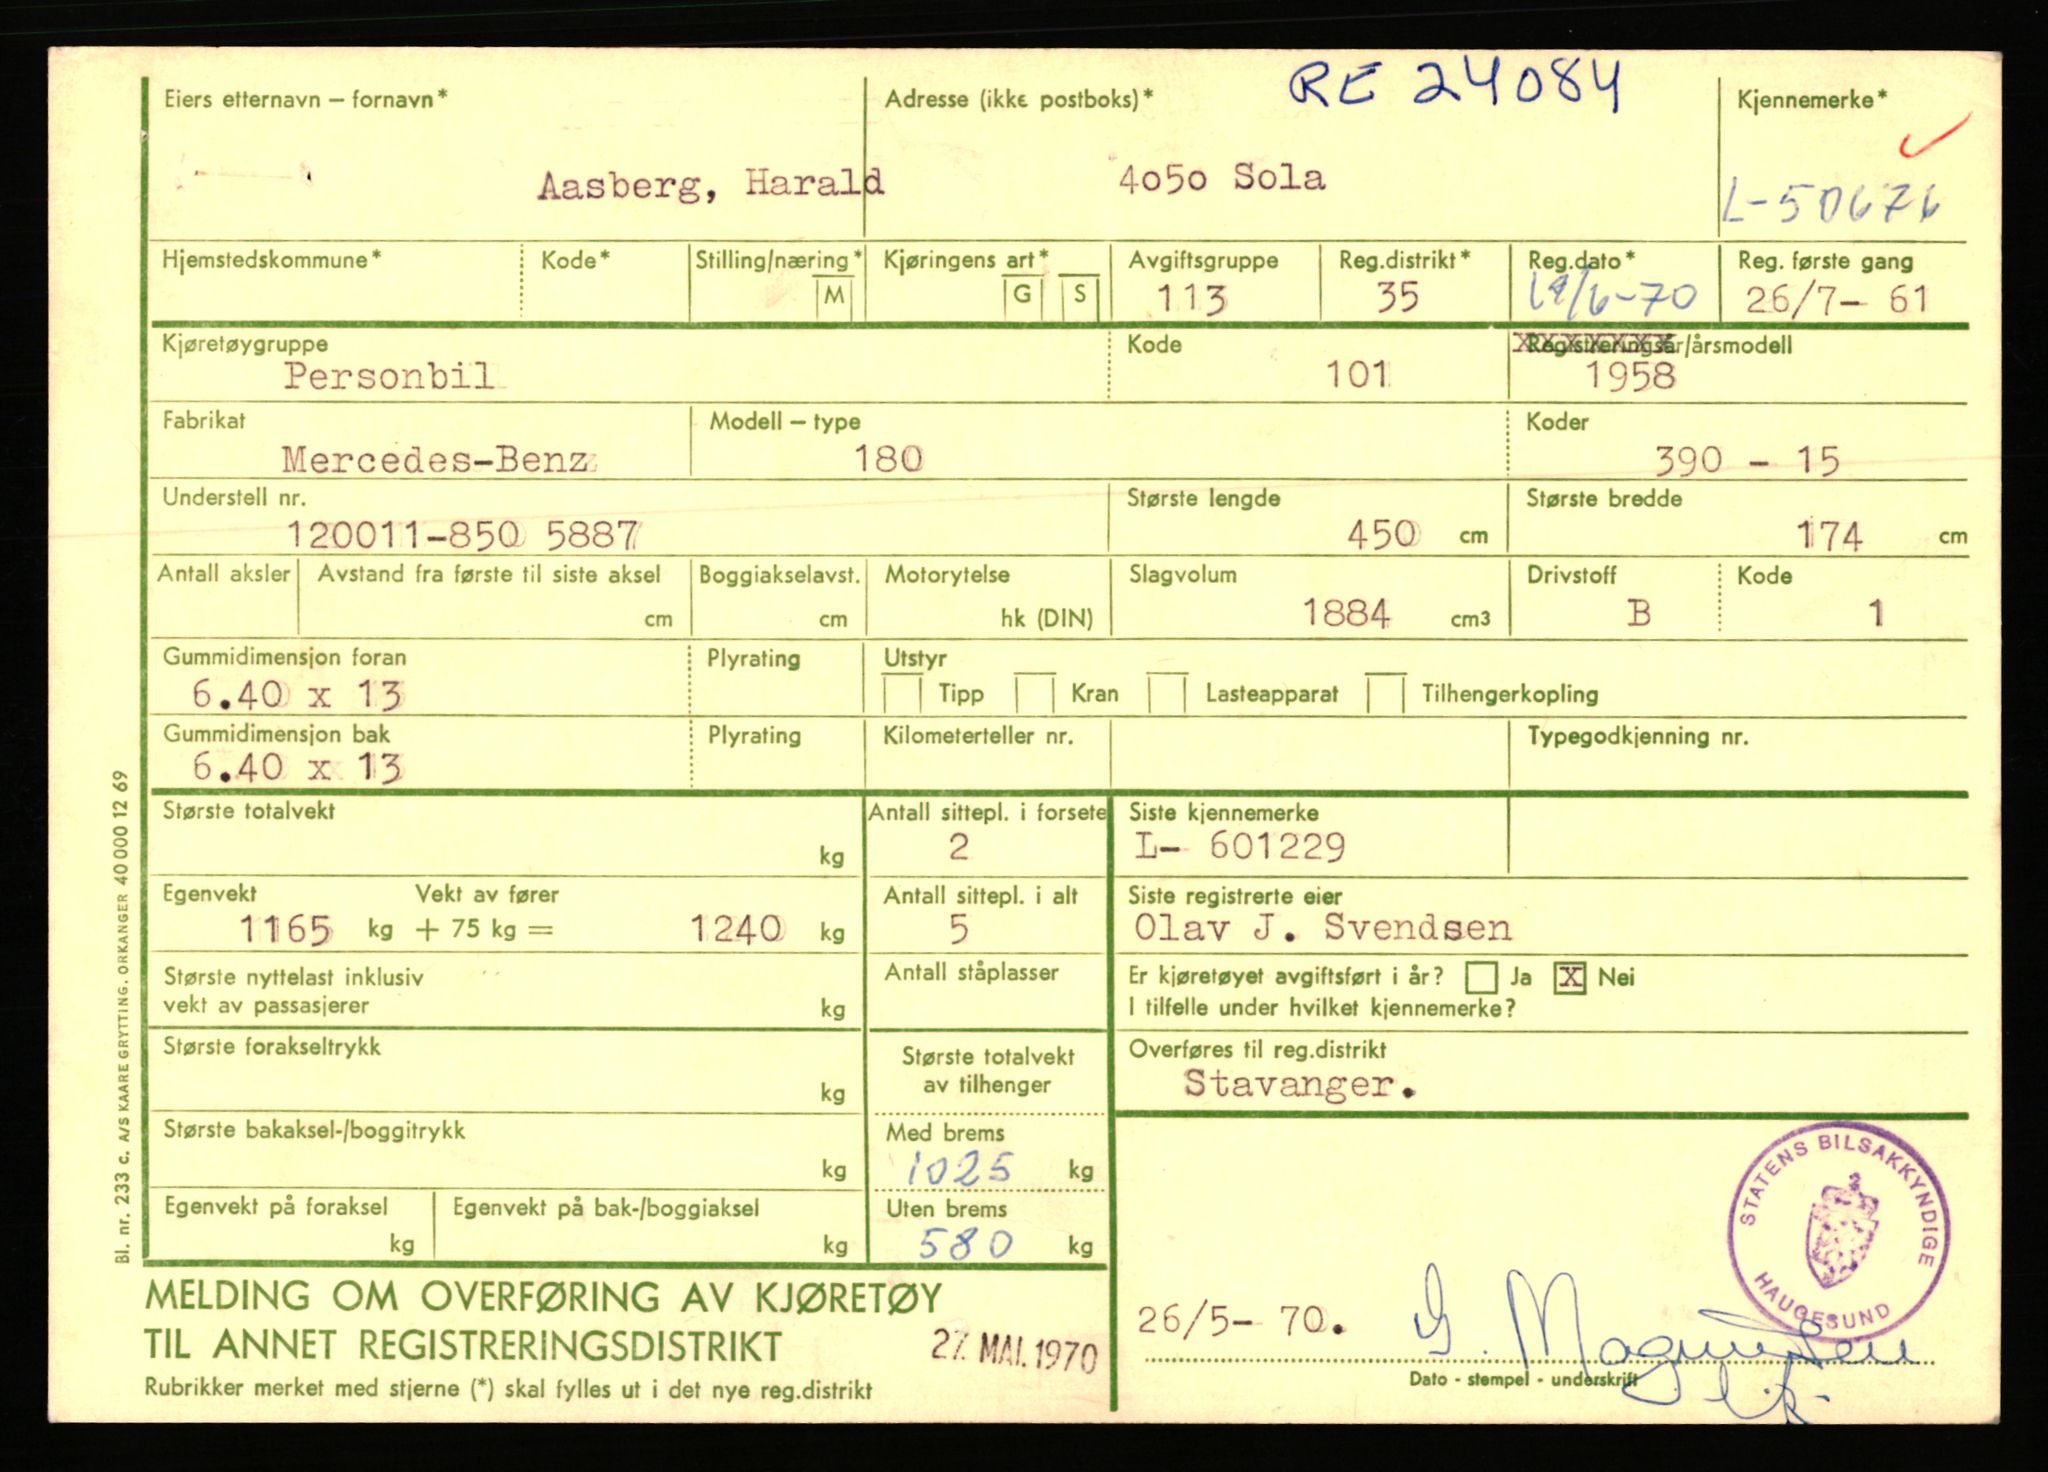 RE 24084
Eiers etternavn – fornavn* Adresse (ikke postboks)* Kjennemerke*
Aasberg, Harald 4050 Sola L-50676
Hjemstedskommune* Kode* Stilling/næring* M Kjøringens art* G S Avgiftsgruppe Reg.distrikt* Reg.dato* Reg. første gang
113 35 /6-70 26/7- 61
Kjøretøygruppe Kode Registreringsår/årsmodell
Personbil 101 1958
Fabrikat Modell – type Koder
Mercedes-Benz 180 390 - 15
Understell nr. Største lengde Største bredde
120011-850 5887 450 cm 174 cm
Antall aksler Avstand fra første til siste aksel Boggiakselavst. Motorytelse Slagvolum Drivstoff Kode
cm cm hk (DIN) 1884 cm3 B 1
Gummidimensjon foran Plyrating Utstyr
6.40 x 13 Tipp Kran Lasteapparat Tilhengerkopling
Gummidimensjon bak Plyrating Kilometerteller nr. Typegodkjenning nr.
6.40 x 13
Største totalvekt Antall sittepl. i forsete Siste kjennemerke
kg 2 L- 601229
Egenvekt Vekt av fører Antall sittepl. i alt Siste registrerte eier
1165 kg + 75 kg = 1240 kg 5 Olav J. Svendsen
Største nyttelast inklusiv Antall ståplasser Er kjøretøyet avgiftsført i år? Ja X Nei
vekt av passasjerer kg I tilfelle under hvilket kjennemerke?
Største forakseltrykk Største totalvekt Overføres til reg.distrikt
kg av tilhenger Stavanger.
Største bakaksel-/boggitrykk Med brems
kg 1025 kg
Egenvekt på foraksel Egenvekt på bak-/boggiaksel Uten brems
kg kg 580 kg
STATENS BILSAKKYNDIGE
HAUGESUND
MELDING OM OVERFØRING AV KJØRETØY
TIL ANNET REGISTRERINGSDISTRIKT 27. MAI. 1970 26/5- 70. G. Magnussen
Rubrikker merket med stjerne (*) skal fylles ut i det nye reg.distrikt Dato - stempel - underskrift
Bl. nr. 233 c. A/S KAARE GRYTTING, ORKANGER 40 000 12 69